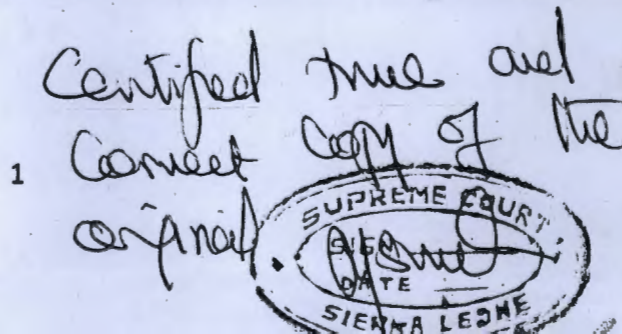 Certified true and
1 Correct Copy of the
original
SUPREME COURT
SIGN
DATE
SIERRA LEONE